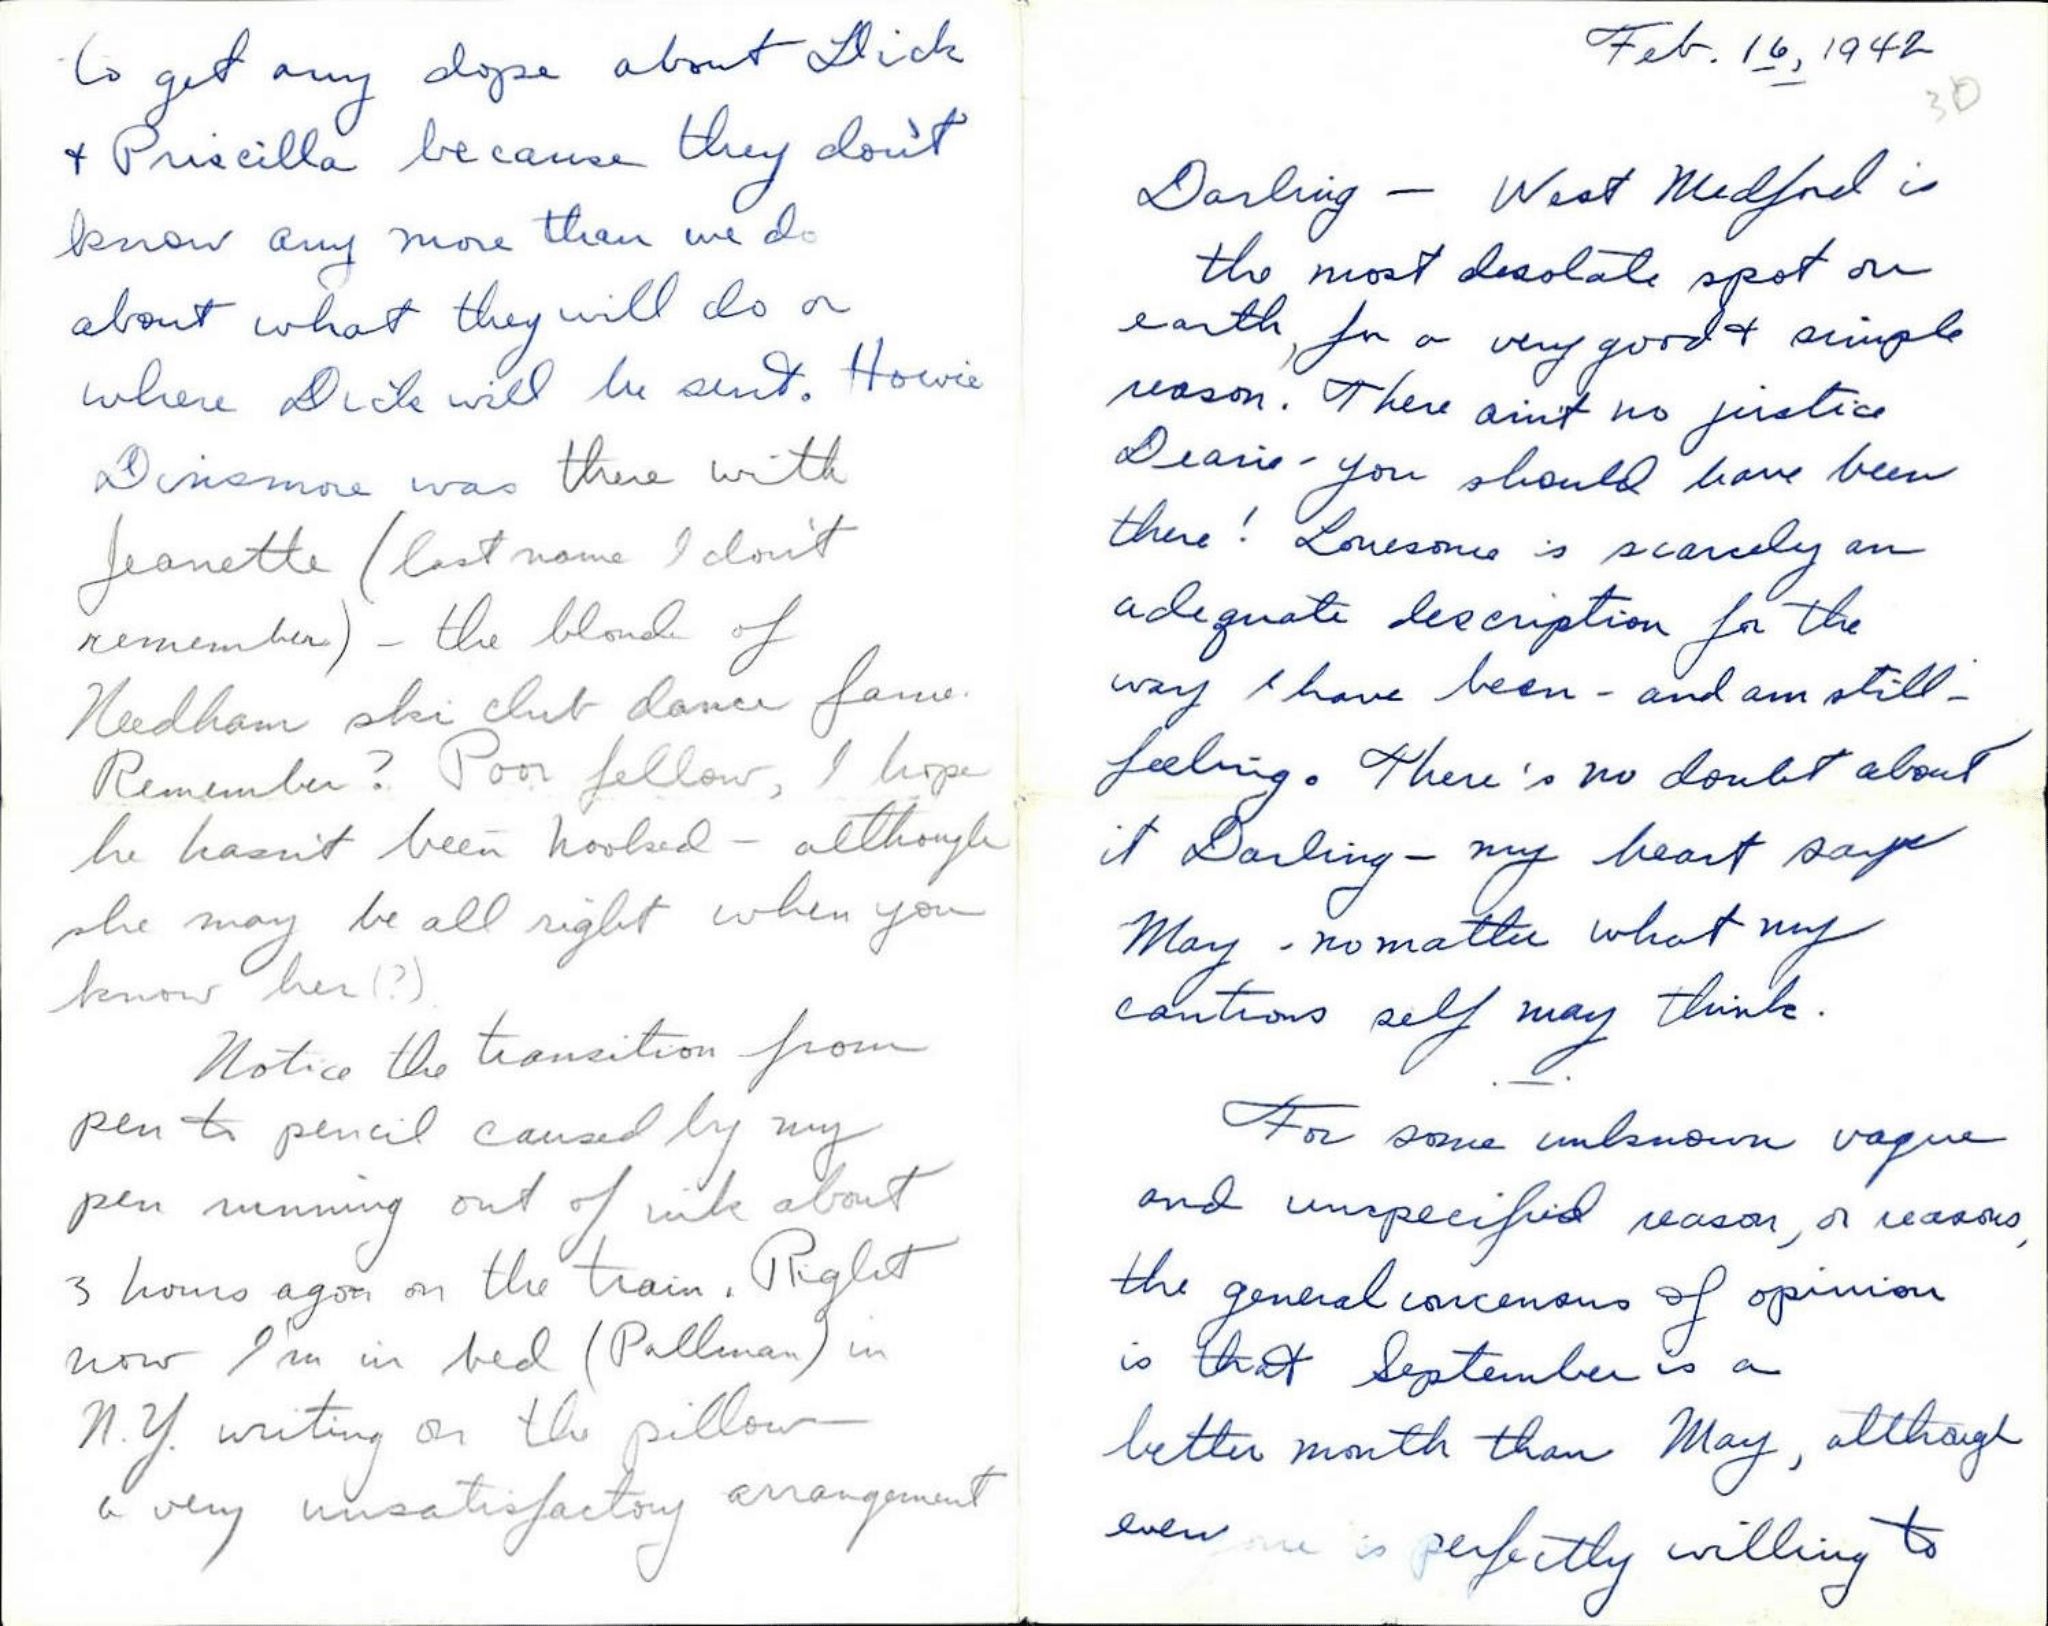 to get any dope about Dick
+ Priscilla because they don't
know any more than we do
about what they will do or
where Dick will be sent. Howie
Dinsmore was there with
Jeanette (last name I don't
remember) - the blonde of
Needham ski club dance fame.
Remember? Poor fellow, I hope
he hasn't been hooked - although
she may be all right when you
know her (?)
Notice the transition from
pen to pencil caused by my
pen running out of ink about
3 hours agon on the train. Right
now I'm in bed (Pullman) in
N.Y. writing on the pillow
a very unsatisfactory arrangement
Feb. 16, 1942
30
Darling — West Medford is
the most desolate spot on
earth, for a very good + simple
reason. There ain't no justice
Dearie - you should have been
there! Lonesome is scarcely an
adequate description for the
way I have been - and am still -
feeling. There's no doubt about
it Darling - my heart says
May - no matter what my
cautious self may think.
For some unknown vague
and unspecified reason, or reasons,
the general concensus of opinion
is that September is a
better month than May, although
everyone is perfectly willing to